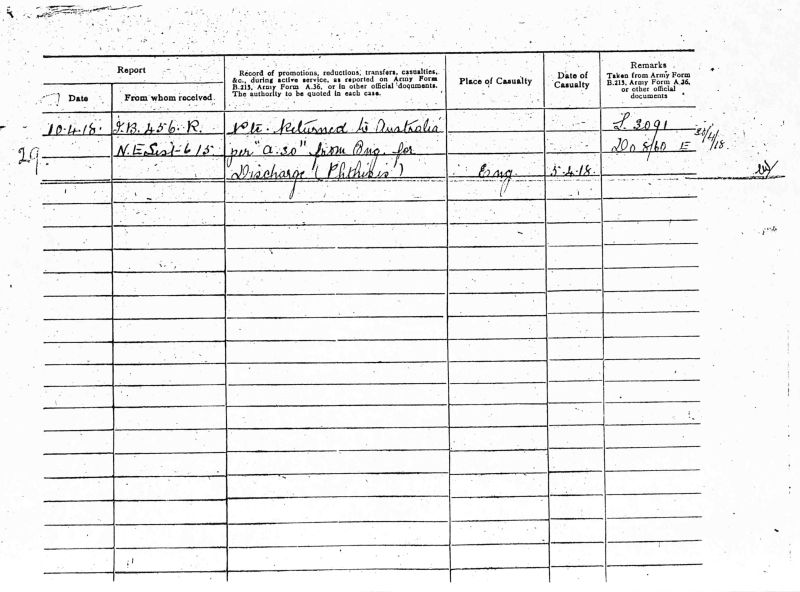 Report
Record of promotions, reductions, transfers, casualties,
&c., during active service, as reported on Army Form
B.213, Army Form A.36, or in other official documents.
The authority to be quoted in each case.
Place of Casualty
Date of
Casualty
Remarks
Taken from Army Form
B.213, Army Form A.36,
or other official
documents
Date
From whom received
10.4.18. I.B. 456. R. Pte. Returned to Australia L. 3091
29 N.E List 615 per "A.30" from Eng. for DO 8/60 E
Discharge (Phthisis) Eng. 5.4.18.